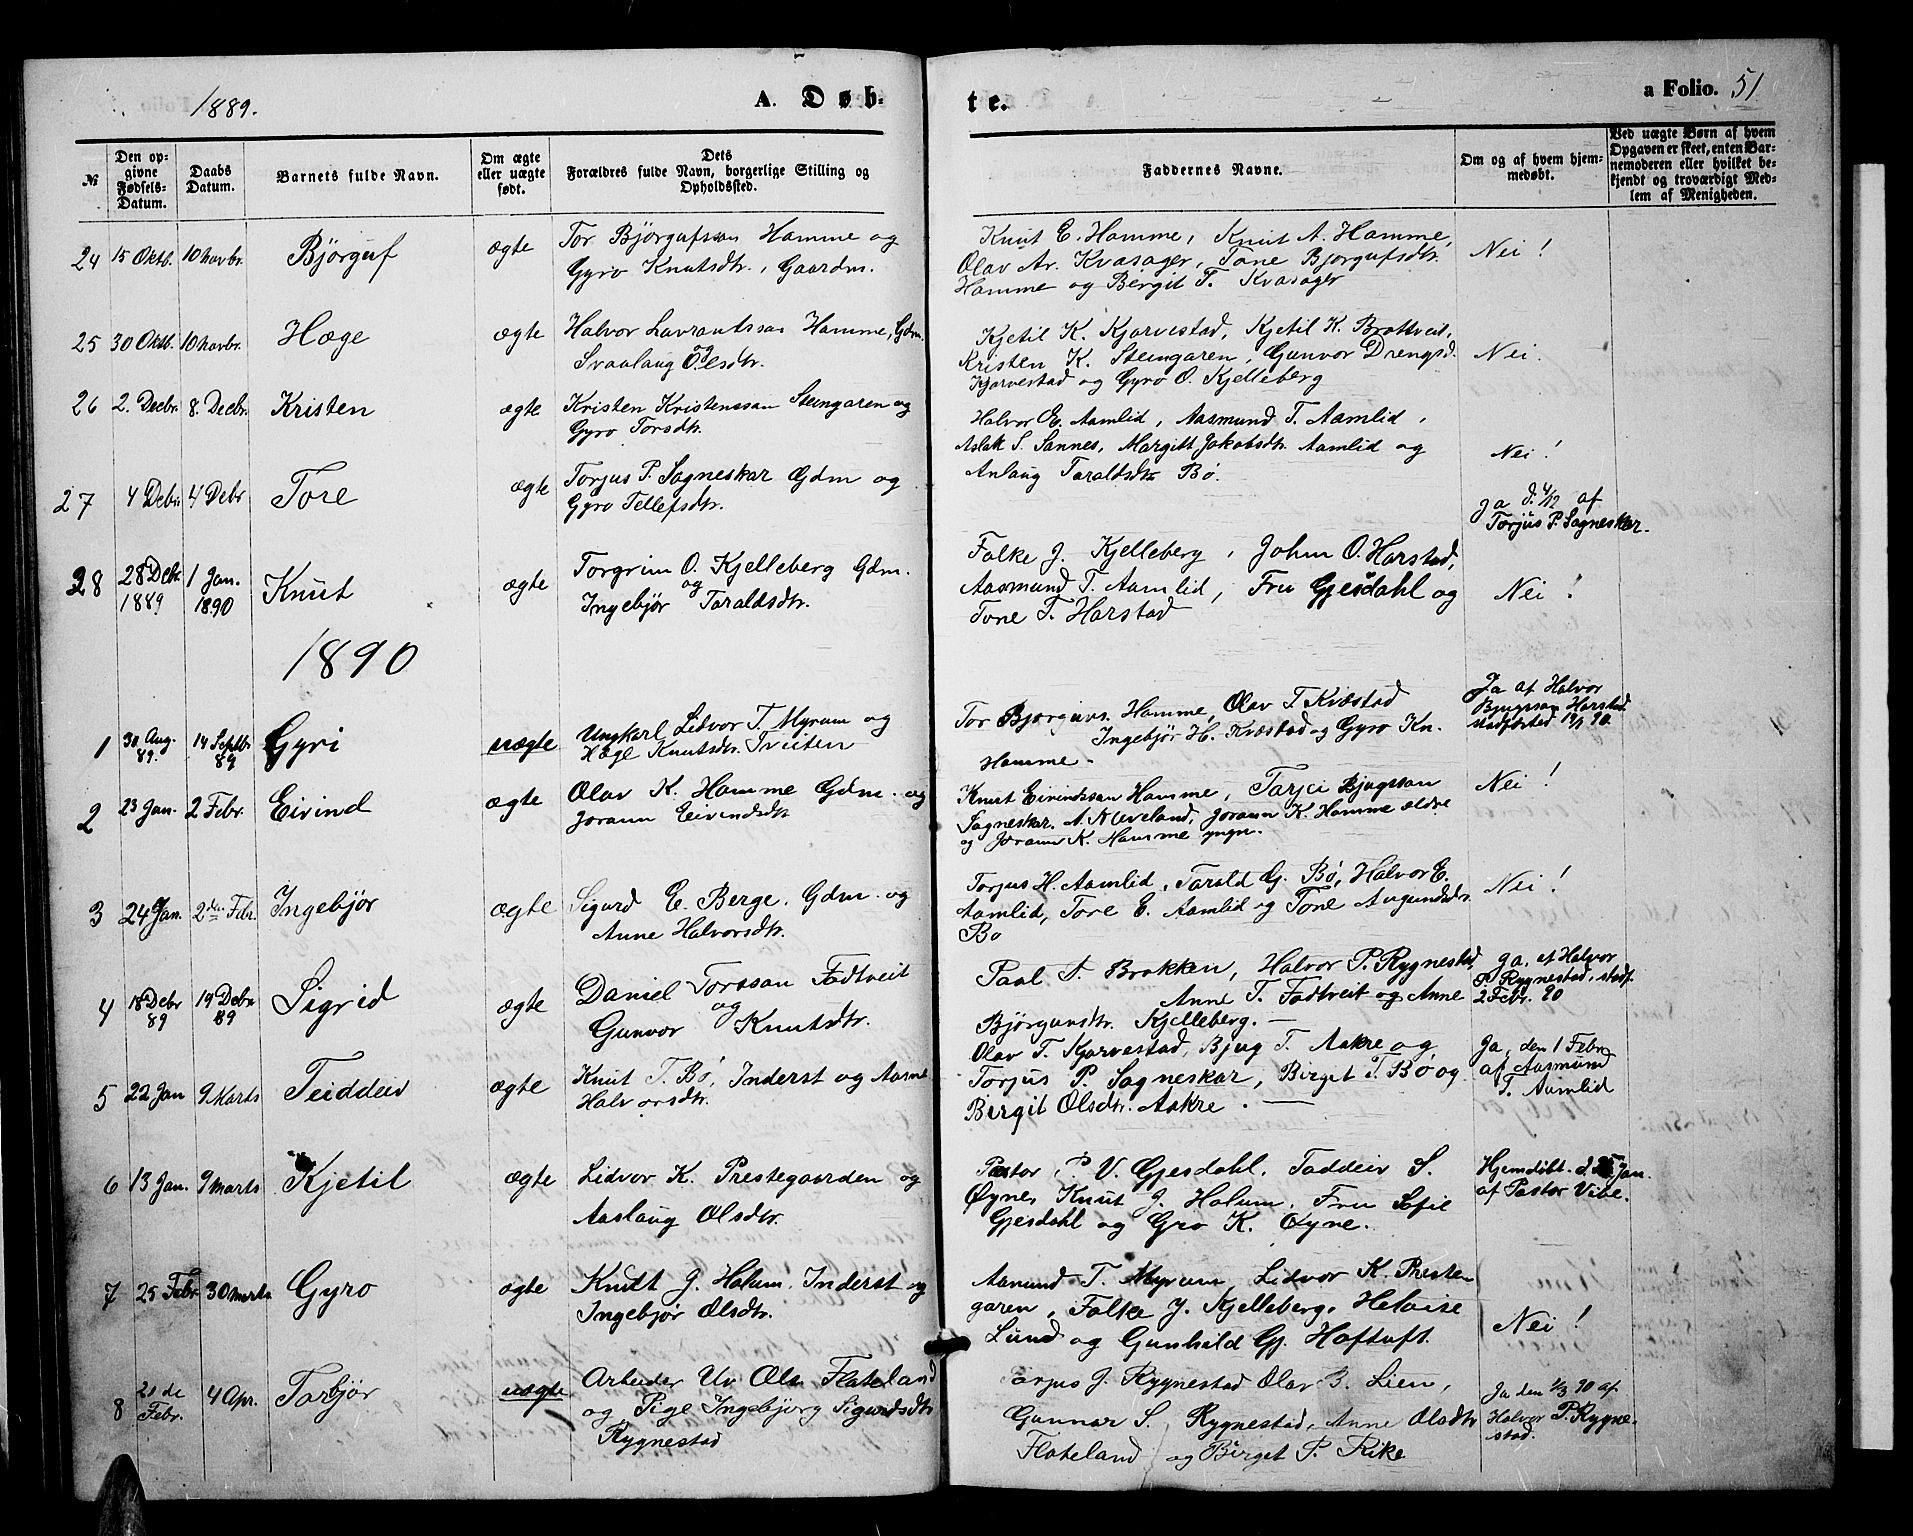 1889.
A. Døb-
te.
a Folio. 51
№
Den op-
givne
Fødsels-
Datum.
Daabs
Datum.
Barnets fulde Navn.
Om ægte
eller uægte
født.
Dets
Forældres fulde Navn, borgerlige Stilling og
Opholdssted.
Faddernes Navne.
Om og af hvem hjem-
medøbt.
Ved uægte Børn af hvem
Opgaven er skeet, enten Bar-
nemoderen eller hvilket be-
kjendt og troværdigt Med-
lem af Menigheden.
24 15 Oktb. 10 novbr. Bjørguf ægte Tor Bjørgufsson Homme og
Gyro Knutsdtr., Gaardm.
Knut E. Homme, Knut A. Homme,
Olav Ar. Kvasager, Tone Bjørgufsdtr.
Homme og Bergit T. Kvasager
Nei!
25 30 Oktb. 10 novbr. Hæge ægte Halvor Lavrantsson Homme, Gdm.
og
Svaalaug Olesdtr.
Kjetil K. Kjørvestad, Kjetil K. Brottveit,
Kristen K. Steingaren, Gunvor Drengsd.
Kjørvestad og Gyro O. Kjelleberg
Nei.
26 2. Decbr. 8. Decbr. Kristen ægte Kristen Kristenssan Steingaren og
Gyro Torsdtr.
Halvor E. Aamlid, Aasmund T. Aamlid,
Aslak S. Sannes, Margitt Jakobsdtr. Aamlid og
Anlaug Taraldsdtr Bø.
Nei!
27 4 Debr. 4 Debr Tore ægte Torjus P. Sagneskar Gdm og
Gyro Tellefsdtr.
Ja d. 4/12 af
Torjus P. Sagneskar.
28 28 Debr.
1889
1 Jan.
1890
Knut ægte Torgrim O. Kjelleberg Gdm.
og
Ingebjør Taraldsdtr.
Folke J. Kjelleberg, John O. Harstad,
Aasmund T. Aamlid, Fru Gjesdahl og
Tone T. Harstad
Nei!
1890
1 30 Aug.
89.
14 Septbr
89
Gyri uægte Ungkarl Lidvor T. Myrum og
Hæge Knutsdtr. Tveiten
Tor Bjørguvs. Homme, Olav T Kvæstad
Ingebjør H. Kvæstad og Gyro Kn.
Homme.
Ja af Halvor
Bjugsson Harstad
stadfæsted 90.
2 23 Jan. 2 Febr. Eivind ægte Olav K. Homme Gdm. og
Joraun Eivindsdtr
Knut Eivindssan Homme, Tarjei Bjugsson
Sagneskar. A. Neveland, Joraun K. Homme ældre
og Joraun K. Homme yngr.
Nei!
3 24 Jan. 2den Febr. Ingebjør ægte Sigurd E. Berge, Gdm. og
Anne Halvorsdtr.
Torjus H. Aamlid, Tarald G. Bø, Halvor E.
Aamlid, Tore E. Aamlid og Tone Augundsdr.
Bø
Nei!
4 18 Debr
89
19 Debr
89
Sigrid ægte Daniel Torsson Fodtveit
og
Gunvor Knutsdtr.
Paal T. Brokken, Halvor P. Rygnestad
Anne T. Fodtveit og Anne
Bjørgunsdtr. Kjelleberg.
Ja, af Halvor
P. Rygnestad, stadf.
2 Febr. 90
5 22 Jan 9 Marts Teiddeiv ægte Knut T. Bø, Inderst og Aasne
Halvorsdtr.
Olav T. Kjørvestad, Bjug T. Aakre og
Torjus P. Sagneskar, Birget T. Bø og
Birgit Olsdtr. Aakre.
Ja, den 1 Febr
af Aasmund
T. Aamlid
6 13 Jan. 9 Marts Kjetil ægte Lidvor K. Prestegaarden og
Aaslaug Olsdtr.
Pastor P. V. Gjesdahl, Taddeiv S.
Øyne, Knut J. Holum, Fru Sofie
Gjesdahl og Gro K. Øyne.
Hjemdøbt d. 25 Jan.
af Pastor Vibe.
7 25 Febr 30 marts Gyro ægte Knut J. Holum, Inderst og
Ingebjør Olsdtr.
Aamund T. Myrum, Lidvor K. Preste-
garen, Folke J. Kjelleberg, Heloise
Lund og Gunhild Gj. Hoftuft.
Nei!
8 21 de
Febr.
4 Apr. Torbjør uægte Arbeider Uv. Ols. Floteland
og Pige Ingebjørg Sigurdsdtr
Rygnestad
Torjus J. Rygnestad Olav B. Lien,
Gunnar S. Rygnestad, Anne Olsdtr
Floteland og Birget P. Rike
Ja den 1/3 90 af
Halvor P. Rygne-
stad.